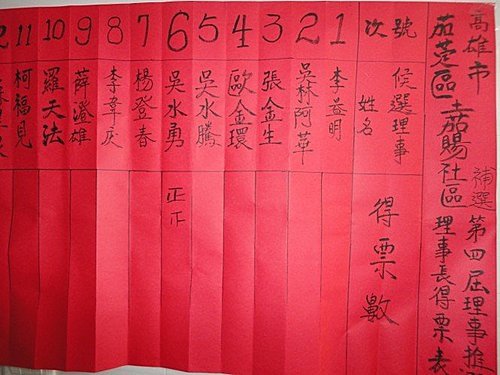 高雄市 補選第四屆理事推選
茄萣區吉賜社區理事長得票表
號次 1 2 3 4 5 6 7 8 9 10 11
候選理事姓名 李益明 吳林阿華 張金生 歐金環 吳水騰 吳水勇 楊登春 李葦庆 薛證雄 羅天法 柯福見
得票數 正正